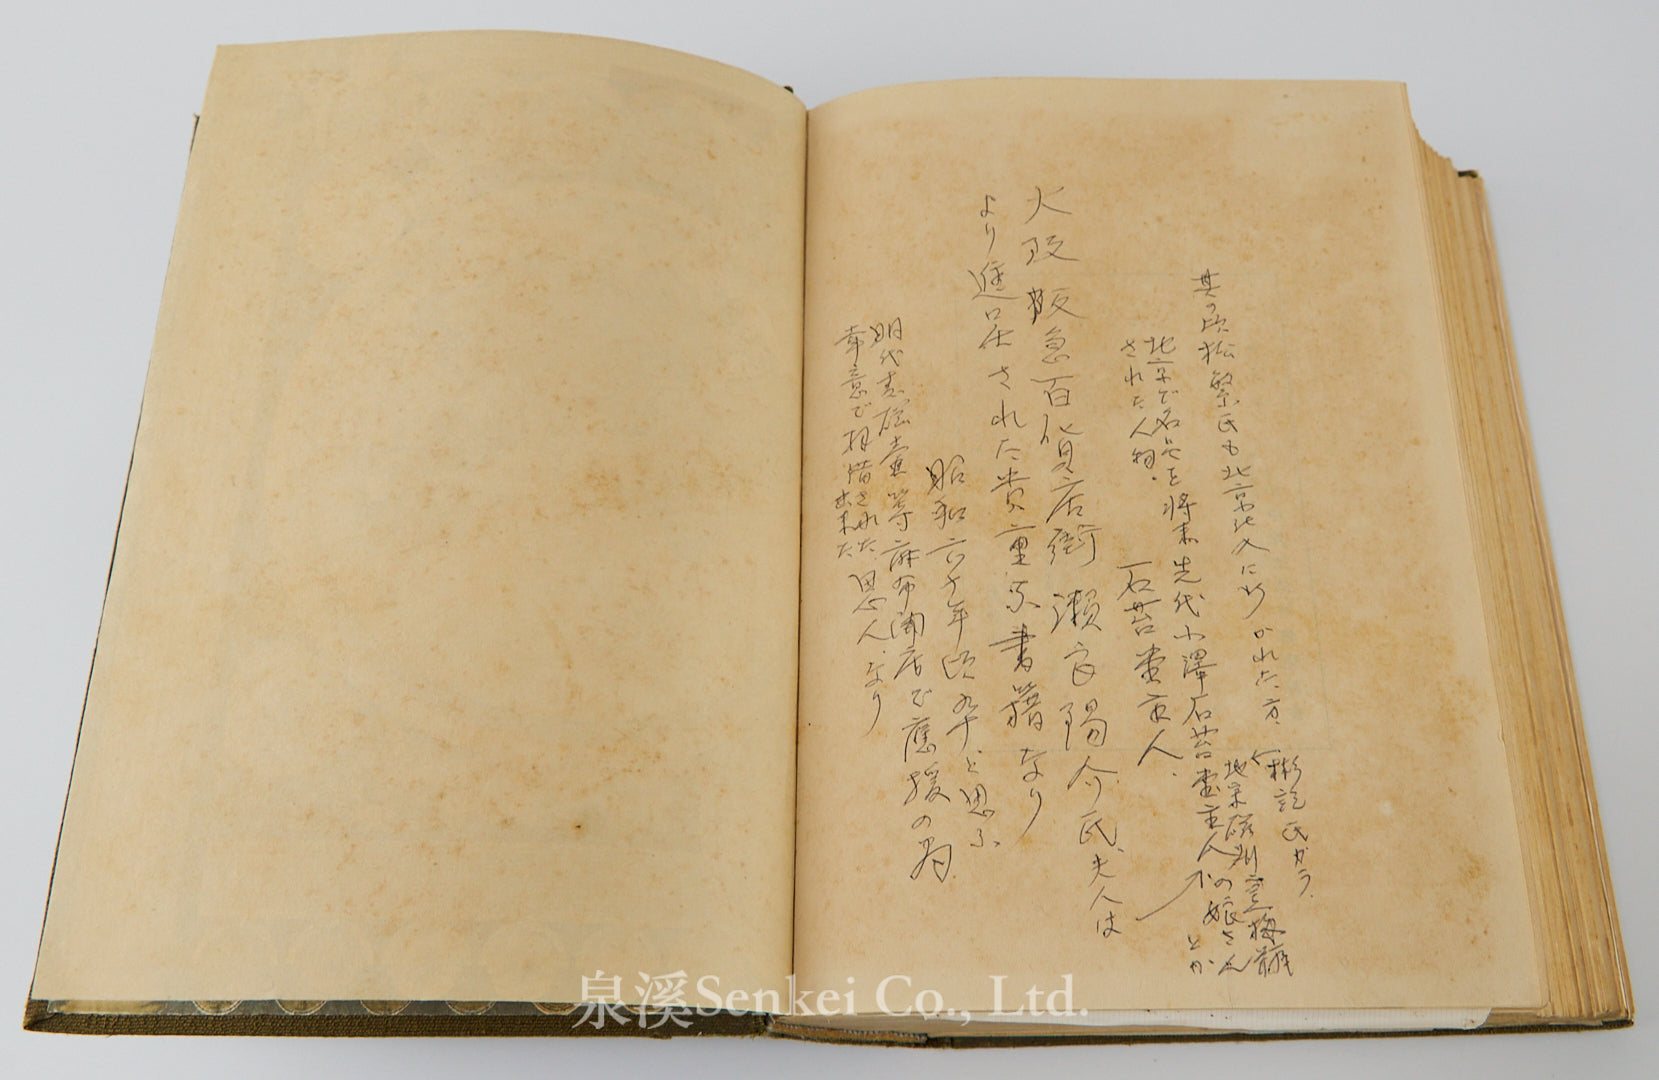 其の頃松繁氏も北京北支に行かれた方、
彬記氏から
北宋磁州窯梅瓶
北京で名品を将来先代小澤石苔堂主人の娘さん
とか
された人物。
石苔堂主人、
大阪阪急百貨店街 瀬良陽介氏、夫人は
より進呈された貴重な書籍なり
昭和六十年頃 と思ふ
明代 壷等麻布開店で應援の為
幸意で拝借された恩人なり
出来た
泉溪Senkei Co., Ltd.